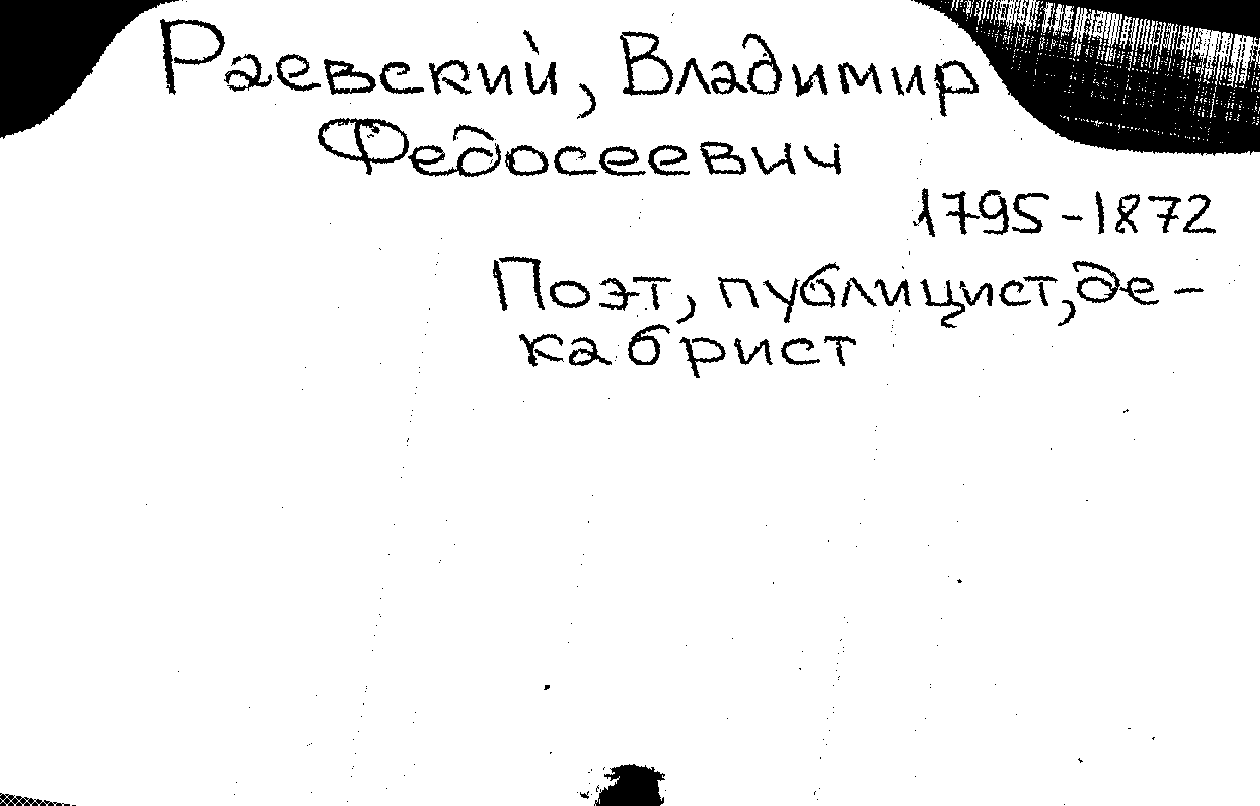 Раевский, Владимир
Федосеевич
1795-1872
Поэт, публицист, де-
кабрист